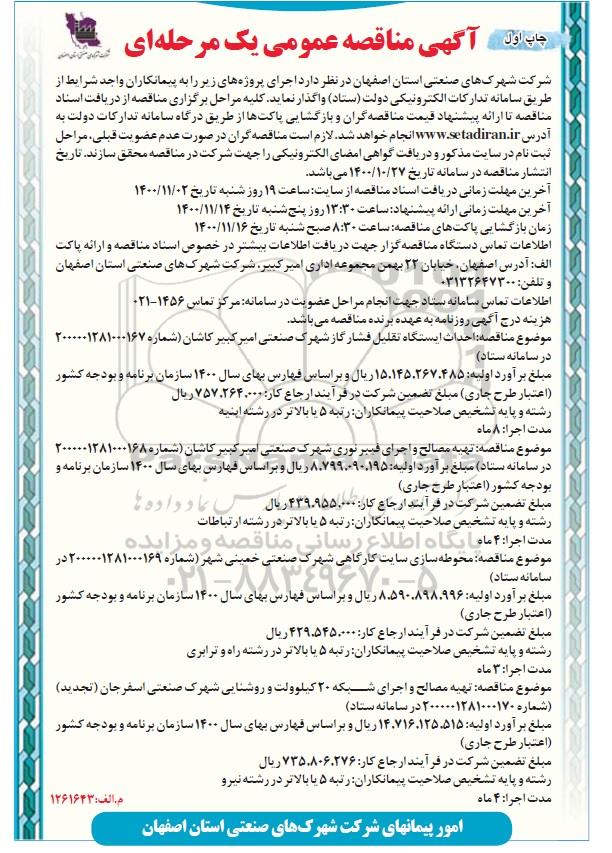 چاپ اول
آگهی مناقصه عمومی یک مرحله‌ای
شرکت شهرک‌های صنعتی استان اصفهان در نظر دارد اجرای پروژه‌های زیر را به پیمانکاران واجد شرایط از
طریق سامانه تدارکات الکترونیکی دولت (ستاد) واگذار نماید. کلیه مراحل برگزاری مناقصه از دریافت اسناد
مناقصه تا ارائه پیشنهاد قیمت مناقصه‌گران و بازگشایی پاکت‌ها از طریق درگاه سامانه تدارکات دولت به
آدرس www.setadiran.ir انجام خواهد شد. لازم است مناقصه‌گران در صورت عدم عضویت قبلی، مراحل
ثبت نام در سایت مذکور و دریافت گواهی امضای الکترونیکی را جهت شرکت در مناقصه محقق سازند. تاریخ
انتشار مناقصه در سامانه تاریخ ۱۴۰۰/۱۰/۲۷ می‌باشد.
آخرین مهلت زمانی دریافت اسناد مناقصه از سایت: ساعت ۱۹ روز شنبه تاریخ ۱۴۰۰/۱۱/۰۲
آخرین مهلت زمانی ارائه پیشنهاد: ساعت ۱۳:۳۰ روز پنج‌شنبه تاریخ ۱۴۰۰/۱۱/۱۴
زمان بازگشایی پاکت‌های مناقصه: ساعت ۸:۳۰ صبح شنبه تاریخ ۱۴۰۰/۱۱/۱۶
اطلاعات تماس دستگاه مناقصه‌گزار جهت دریافت اطلاعات بیشتر در خصوص اسناد مناقصه و ارائه پاکت
الف: آدرس اصفهان، خیابان ۲۲ بهمن مجموعه اداری امیرکبیر، شرکت شهرک‌های صنعتی استان اصفهان
و تلفن: ۰۳۱۳۲۶۴۷۳۰۰
اطلاعات تماس سامانه ستاد جهت انجام مراحل عضویت در سامانه: مرکز تماس ۱۴۵۶-۰۲۱
هزینه درج آگهی روزنامه به عهده برنده مناقصه می‌باشد.
موضوع مناقصه: احداث ایستگاه تقلیل فشار گاز شهرک صنعتی امیرکبیر کاشان (شماره ۲۰۰۰۰۰۱۲۸۱۰۰۰۱۶۷
در سامانه ستاد)
مبلغ برآورد اولیه: ۱۵.۱۴۵.۲۶۷.۴۸۵ ریال و بر اساس فهارس بهای سال ۱۴۰۰ سازمان برنامه و بودجه کشور
(اعتبار طرح جاری) مبلغ تضمین شرکت در فرآیند ارجاع کار: ۷۵۷.۲۶۴.۰۰۰ ریال
رشته و پایه تشخیص صلاحیت پیمانکاران: رتبه ۵ یا بالاتر در رشته ابنیه
مدت اجرا: ۸ ماه
موضوع مناقصه: تهیه مصالح و اجرای فیبر نوری شهرک صنعتی امیرکبیر کاشان (شماره ۲۰۰۰۰۰۱۲۸۱۰۰۰۱۶۸
در سامانه ستاد) مبلغ برآورد اولیه: ۸.۷۹۹.۰۹۰.۱۹۵ ریال و بر اساس فهارس بهای سال ۱۴۰۰ سازمان برنامه و
بودجه کشور (اعتبار طرح جاری)
مبلغ تضمین شرکت در فرآیند ارجاع کار: ۴۳۹.۹۵۵.۰۰۰ ریال
رشته و پایه تشخیص صلاحیت پیمانکاران: رتبه ۵ یا بالاتر در رشته ارتباطات
مدت اجرا: ۴ ماه
موضوع مناقصه: محوطه‌سازی سایت کارگاهی شهرک صنعتی خمینی شهر (شماره ۲۰۰۰۰۰۱۲۸۱۰۰۰۱۶۹ در
سامانه ستاد)
مبلغ برآورد اولیه: ۸.۵۹۰.۸۹۸.۹۹۶ ریال و بر اساس فهارس بهای سال ۱۴۰۰ سازمان برنامه و بودجه کشور
(اعتبار طرح جاری)
مبلغ تضمین شرکت در فرآیند ارجاع کار: ۴۲۹.۵۴۵.۰۰۰ ریال
رشته و پایه تشخیص صلاحیت پیمانکاران: رتبه ۵ یا بالاتر در رشته راه و ترابری
مدت اجرا: ۳ ماه
موضوع مناقصه: تهیه مصالح و اجرای شبکه ۲۰ کیلوولت و روشنایی شهرک صنعتی اسفرجان (تجدید)
(شماره ۲۰۰۰۰۰۱۲۸۱۰۰۰۱۷۰ در سامانه ستاد)
مبلغ برآورد اولیه: ۱۴.۷۱۶.۱۲۵.۵۱۵ ریال و بر اساس فهارس بهای سال ۱۴۰۰ سازمان برنامه و بودجه کشور
(اعتبار طرح جاری)
مبلغ تضمین شرکت در فرآیند ارجاع کار: ۷۳۵.۸۰۶.۲۷۶ ریال
رشته و پایه تشخیص صلاحیت پیمانکاران: رتبه ۵ یا بالاتر در رشته نیرو
مدت اجرا: ۴ ماه
م.الف: ۱۲۶۱۶۴۳
امور پیمانهای شرکت شهرک‌های صنعتی استان اصفهان
پایگاه اطلاع رسانی مناقصه و مزایده
۰۲۱-۸۸۳۴۹۶۷۰-۵